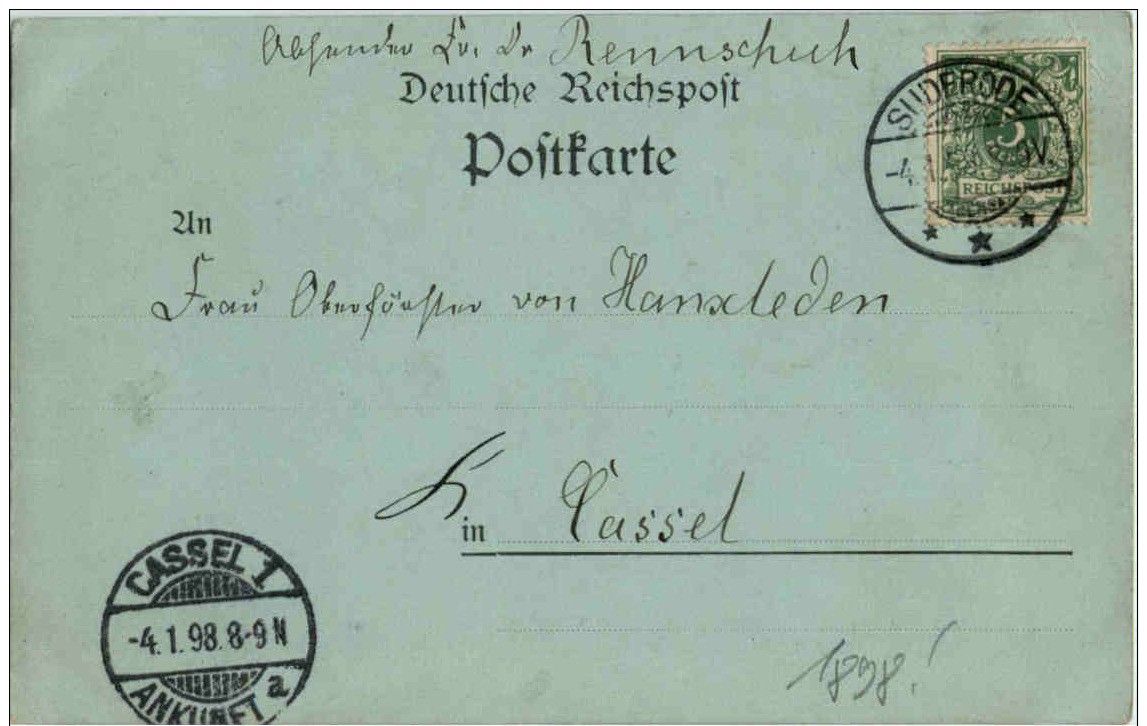 Absender Fr. Dr Rennschuh
Deutsche Reichspost
Postkarte
SUDERODE
-4. V.
5
REICHSPOST
An
Frau Oberförster von Hanxleden
in Cassel
CASSEL 1
-4.1.98.8-9 N
ANKUNFT a
1898!